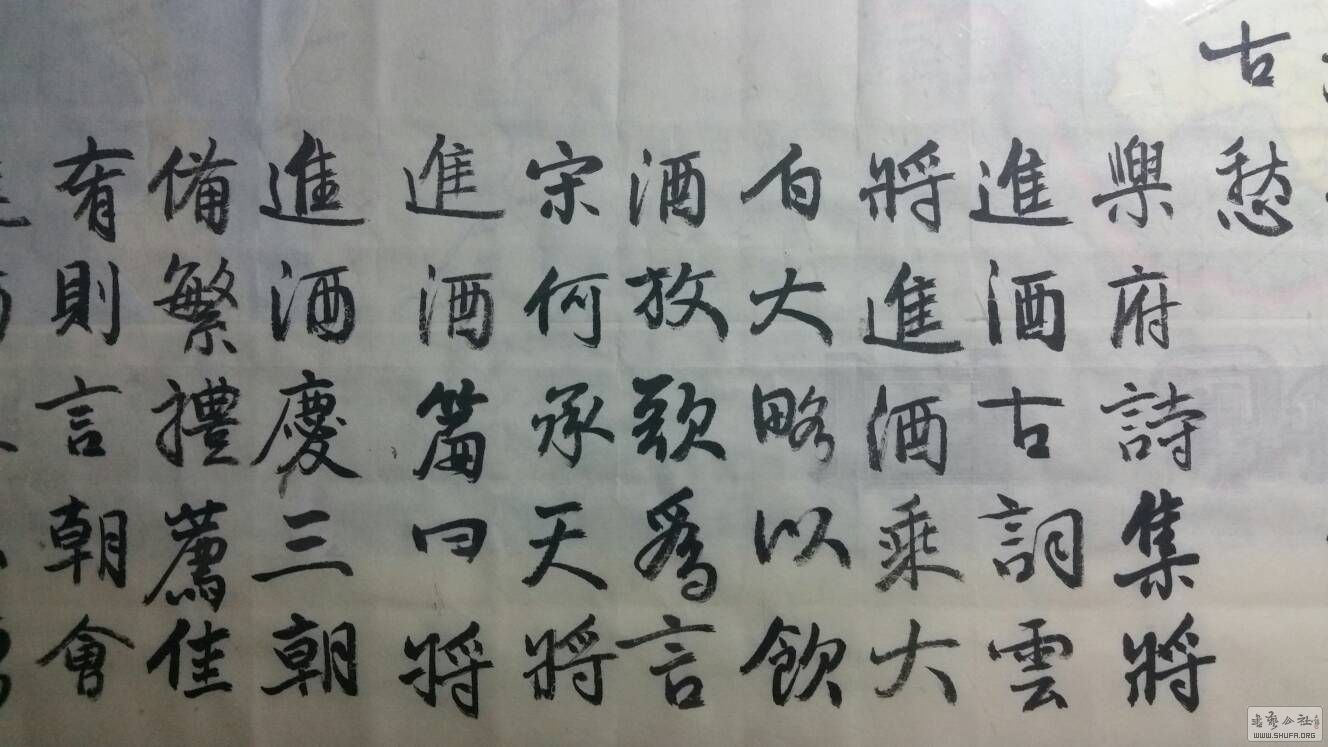 古愁
樂府詩集將
進酒古詞雲
將進酒乘大
白大略以飲
酒放歌為言
宋何承天將
進酒篇曰將
進酒慶三朝
備繁禮薦佳
肴則言朝會
WWW.SHUFA.ORG